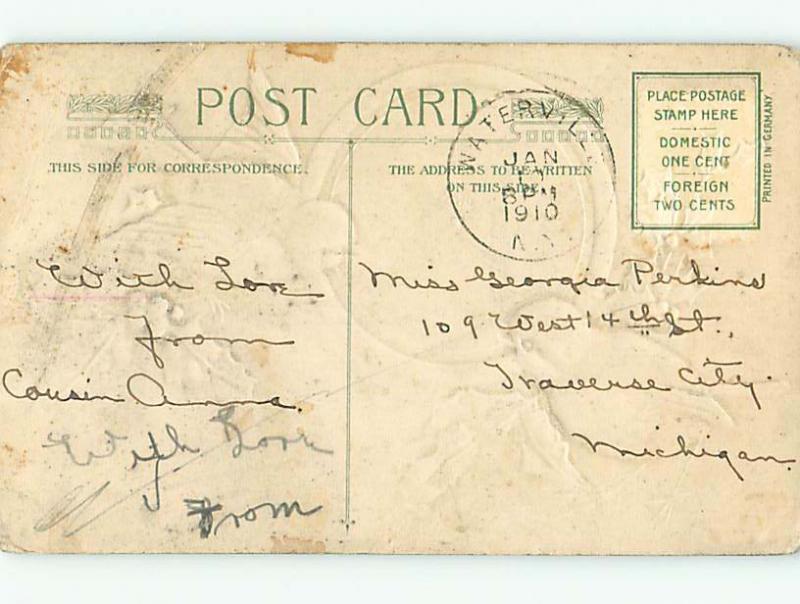 POST CARD.
THIS SIDE FOR CORRESPONDENCE.
THE ADDRESS TO BE WRITTEN
ON THIS SIDE.
PLACE POSTAGE
STAMP HERE
DOMESTIC
ONE CENT
FOREIGN
TWO CENTS
PRINTED IN GERMANY
JAN
1910
With Love
From
Cousin Anna.
With Love
From
Miss Georgia Perkins
109 West 14th St.,
Traverse City.
Michigan.